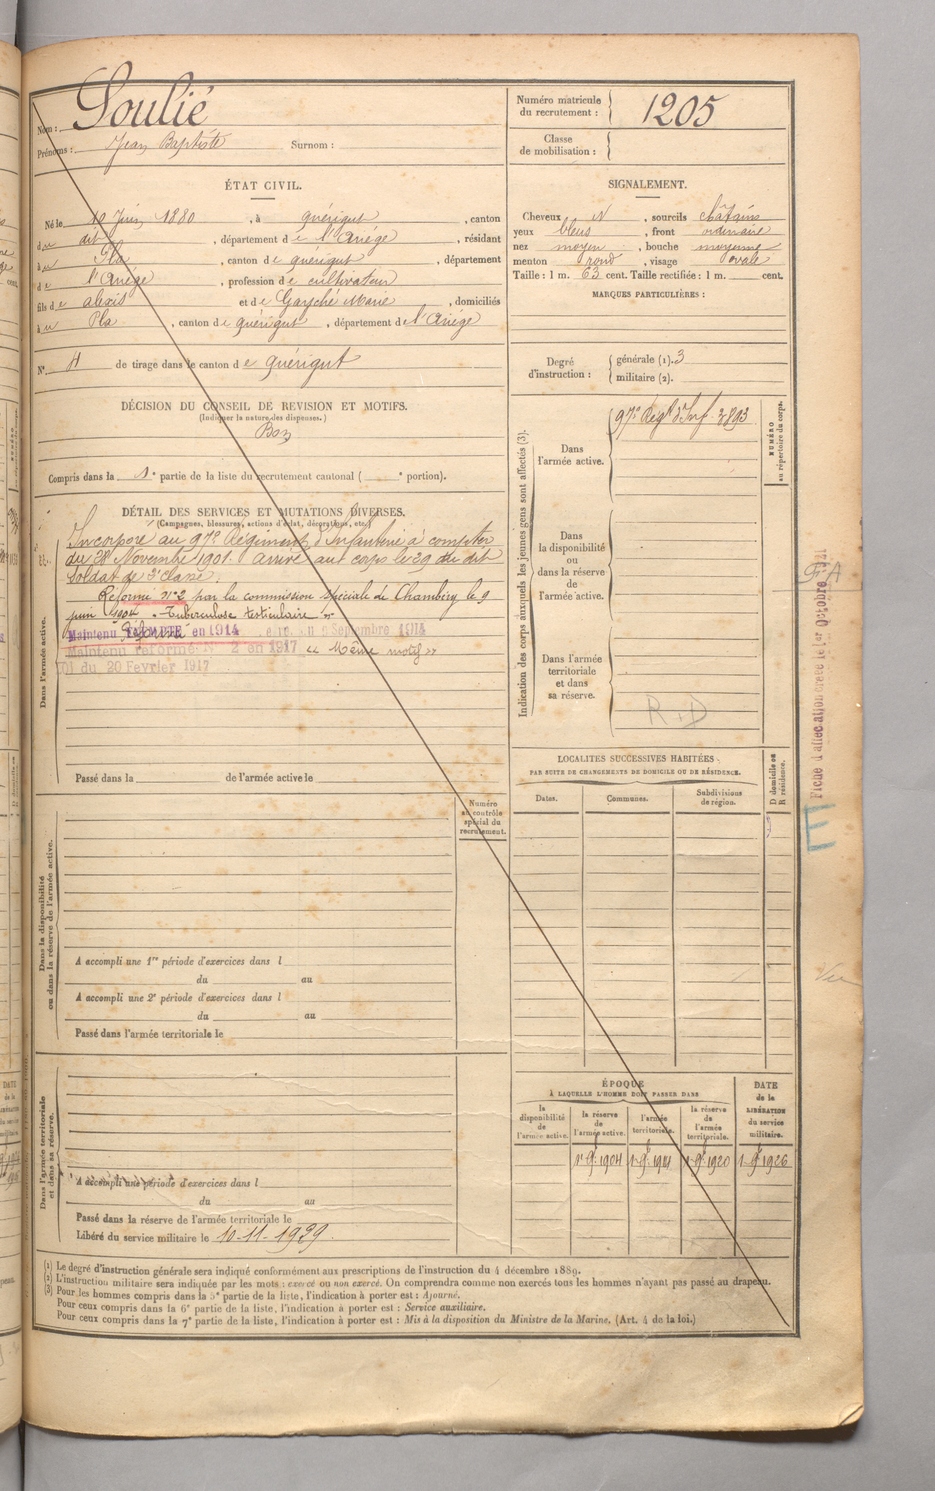 Nom : Soulié
Prénoms : Jean Baptiste Surnom :
Numéro matricule du recrutement : 1205
Classe de mobilisation :
ÉTAT CIVIL.
Né le 10 Juin 1880, à quérigut, canton
du dit, département de l'Ariége, résidant
à Pla, canton de quérigut, département
de l'Ariége, profession de cultivateur
fils de alexis et de Garché Marie, domiciliés
à Pla, canton de quérigut, département de l'Ariége
N° 4 de tirage dans le canton de quérigut
SIGNALEMENT.
Cheveux N, sourcils chatains
yeux bleus, front ordinaire
nez moyen, bouche moyenne
menton rond, visage ovale
Taille : 1 m. 63 cent. Taille rectifiée : 1 m. cent.
MARQUES PARTICULIÈRES :
Degré d'instruction : générale (1). 3
militaire (2).
DÉCISION DU CONSEIL DE REVISION ET MOTIFS.
(Indiquer la nature des dispenses.)
Bon
Compris dans la 1e partie de la liste du recrutement cantonal ( e portion).
DÉTAIL DES SERVICES ET MUTATIONS DIVERSES.
(Campagnes, blessures, actions d'éclat, décorations, etc.)
Dans l'armée active.
Incorporé au 97e Régiment d'Infanterie à compter
du 28 Novembre 1901. Arrivé au corps le 29 du dit
Soldat de 2e classe.
Réformé N°2 par la commission spéciale de Chambéry le 9
juin 1904. Tuberculose testiculaire
Maintenu EXEMPTÉ en 1914 Septembre 1914
Réformé
Maintenu réformé N° 2 en 1917 Même motif
DI du 20 Fevrier 1917
Passé dans la de l'armée active le
Indication des corps auxquels les jeunes gens sont affectés (3).
Dans l'armée active. 97e Regt d'Inf. 2893
NUMÉRO au répertoire du corps.
Dans la disponibilité ou dans la réserve de l'armée active.
Dans l'armée territoriale et dans sa réserve.
R.D
Fiche d'affectation créée le 1er Octobre 1921
E
Vu
LOCALITÉS SUCCESSIVES HABITÉES
PAR SUITE DE CHANGEMENTS DE DOMICILE OU DE RÉSIDENCE.
Dates. Communes. Subdivisions de région. D domicile ou R résidence.
Numéro au contrôle spécial du recrutement.
Dans la disponibilité ou dans la réserve de l'armée active.
A accompli une 1re période d'exercices dans l
du au
A accompli une 2e période d'exercices dans l
du au
Passé dans l'armée territoriale le
Dans l'armée territoriale et dans sa réserve.
A accompli une période d'exercices dans l
du au
Passé dans la réserve de l'armée territoriale le
Libéré du service militaire le 10-11-1929.
ÉPOQUE
À LAQUELLE L'HOMME DOIT PASSER DANS
la disponibilité de l'armée active.
la réserve de l'armée active.
l'armée territoriale.
la réserve de l'armée territoriale.
DATE de la LIBÉRATION du service militaire.
1 9e 1904 1 9e 1911 1 9e 1920 1 9e 1926
(1) Le degré d'instruction générale sera indiqué conformément aux prescriptions de l'instruction du 4 décembre 1889.
(2) L'instruction militaire sera indiquée par les mots : exercé ou non exercé. On comprendra comme non exercés tous les hommes n'ayant pas passé au drapeau.
(3) Pour les hommes compris dans la 5e partie de la liste, l'indication à porter est : Ajourné.
Pour ceux compris dans la 6e partie de la liste, l'indication à porter est : Service auxiliaire.
Pour ceux compris dans la 7e partie de la liste, l'indication à porter est : Mis à la disposition du Ministre de la Marine. (Art. 4 de la loi.)